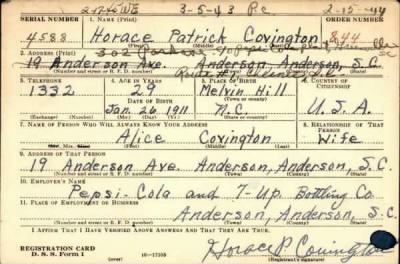 3-5-43 P.C 2-15-44
SERIAL NUMBER 1. NAME (Print) ORDER NUMBER
4588 Horace Patrick Covington 844
(First) (Middle) (Last)
2. ADDRESS (Print)
19 Anderson Ave. Anderson, Anderson, S.C.
(Number and street or R. F. D. number) (Town) (County) (State)
3. TELEPHONE 4. AGE IN YEARS 5. PLACE OF BIRTH 6. COUNTRY OF CITIZENSHIP
1332 29 Melvin Hill
DATE OF BIRTH (Town or county)
Jan. 26 1911 N.C. U.S.A.
(Exchange) (Number) (Mo.) (Day) (Yr.) (State or country)
7. NAME OF PERSON WHO WILL ALWAYS KNOW YOUR ADDRESS 8. RELATIONSHIP OF THAT PERSON
Alice Covington Wife
(Mr., Mrs., Miss) (First) (Middle) (Last)
9. ADDRESS OF THAT PERSON
19 Anderson Ave. Anderson, Anderson, S.C.
(Number and street or R. F. D. number) (Town) (County) (State)
10. EMPLOYER'S NAME
Pepsi-Cola and 7-Up Bottling Co.
11. PLACE OF EMPLOYMENT OR BUSINESS
Anderson, Anderson, S.C.
(Number and street or R. F. D. number) (Town) (County) (State)
I AFFIRM THAT I HAVE VERIFIED ABOVE ANSWERS AND THAT THEY ARE TRUE.
REGISTRATION CARD
D. S. S. Form 1 16-17105 Horace P Covington
(Registrant's signature)